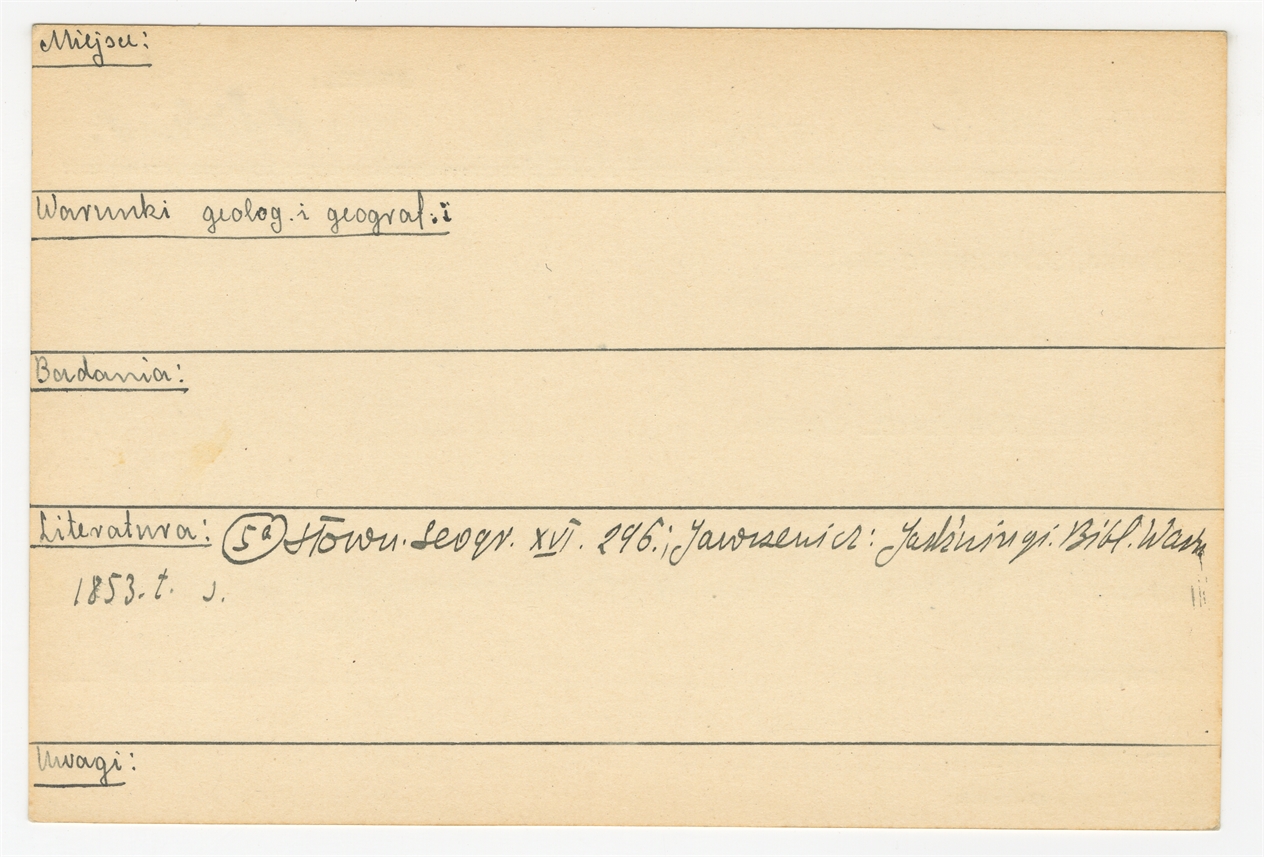 Miejsce:
Warunki geolog. i geograf.:
Badania:
Literatura: 5a Słown. Geogr. XVI. 296.; Jadźwingi. Bibl. Warsz
1853. t. s.
Uwagi: